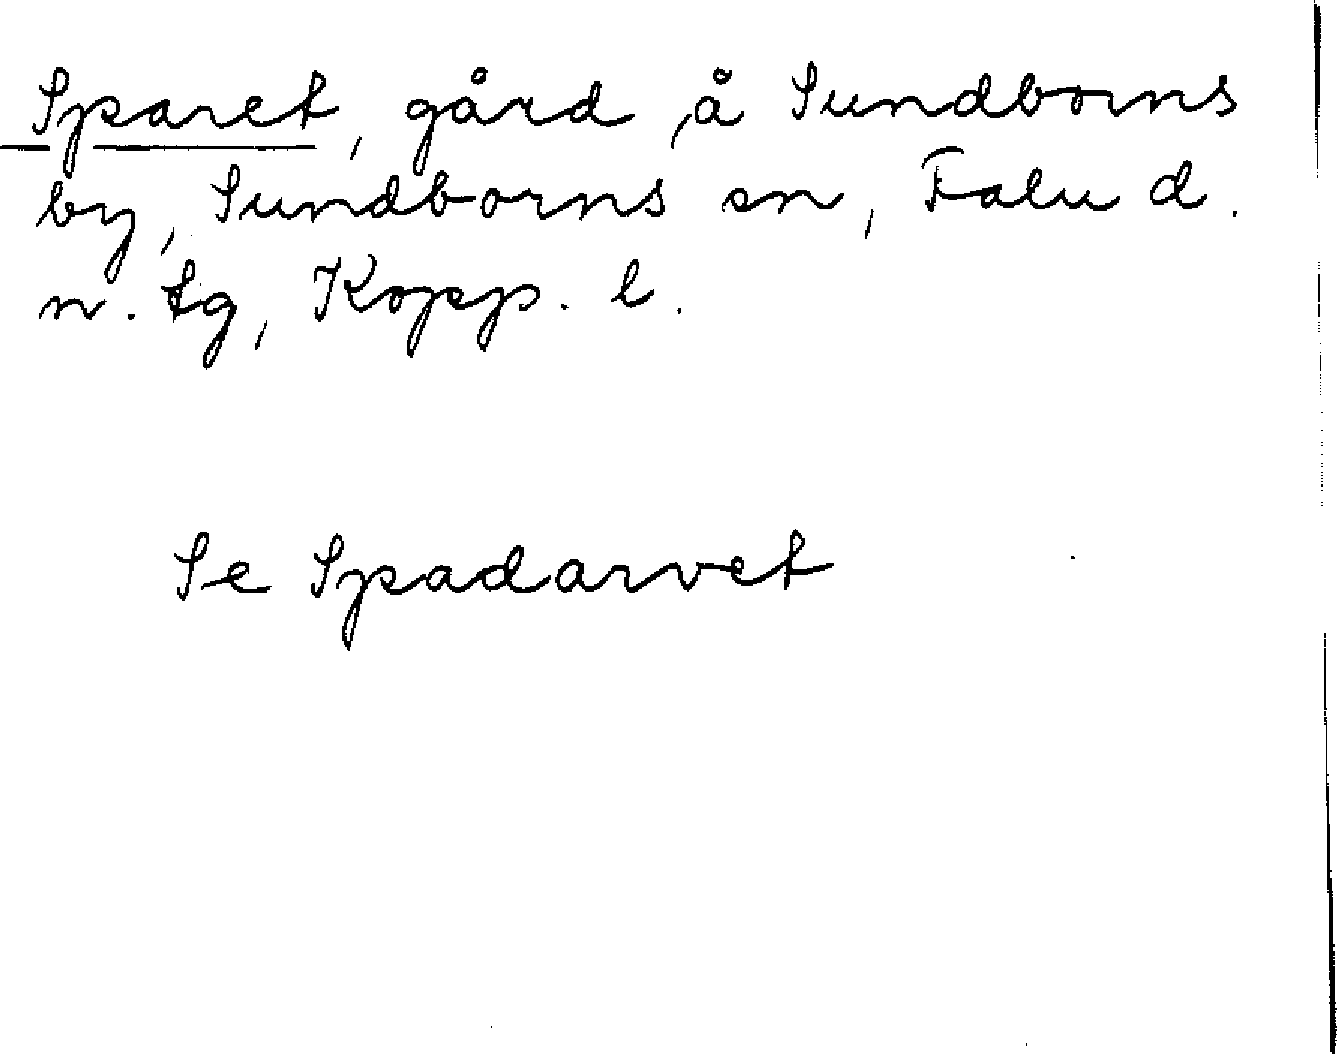 Sparet, gård, å Sundborns
by, Sundborns sn, Falu d.
n. tg, Kopp. l.
Se Spadarvet